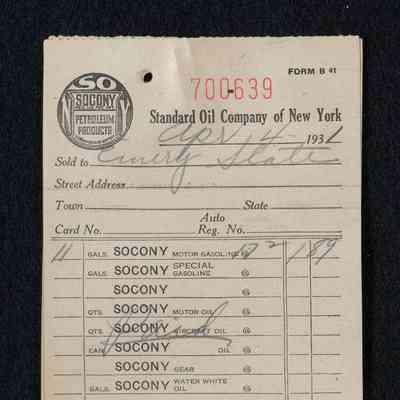 FORM B 41
SO
SOCONY
PETROLEUM
PRODUCTS
700639
Standard Oil Company of New York
Apr 4 1931
Sold to Emery Slate
Street Address
Town State
Auto
Card No. Reg. No.
11 GALS. SOCONY MOTOR GASOLINE @ 1 89
GALS. SOCONY SPECIAL GASOLINE @
SOCONY @
QTS. SOCONY MOTOR OIL @
QTS. SOCONY AIRCRAFT OIL @
CAN SOCONY OIL @
SOCONY GEAR @
GALS. SOCONY WATER WHITE OIL @
Paid